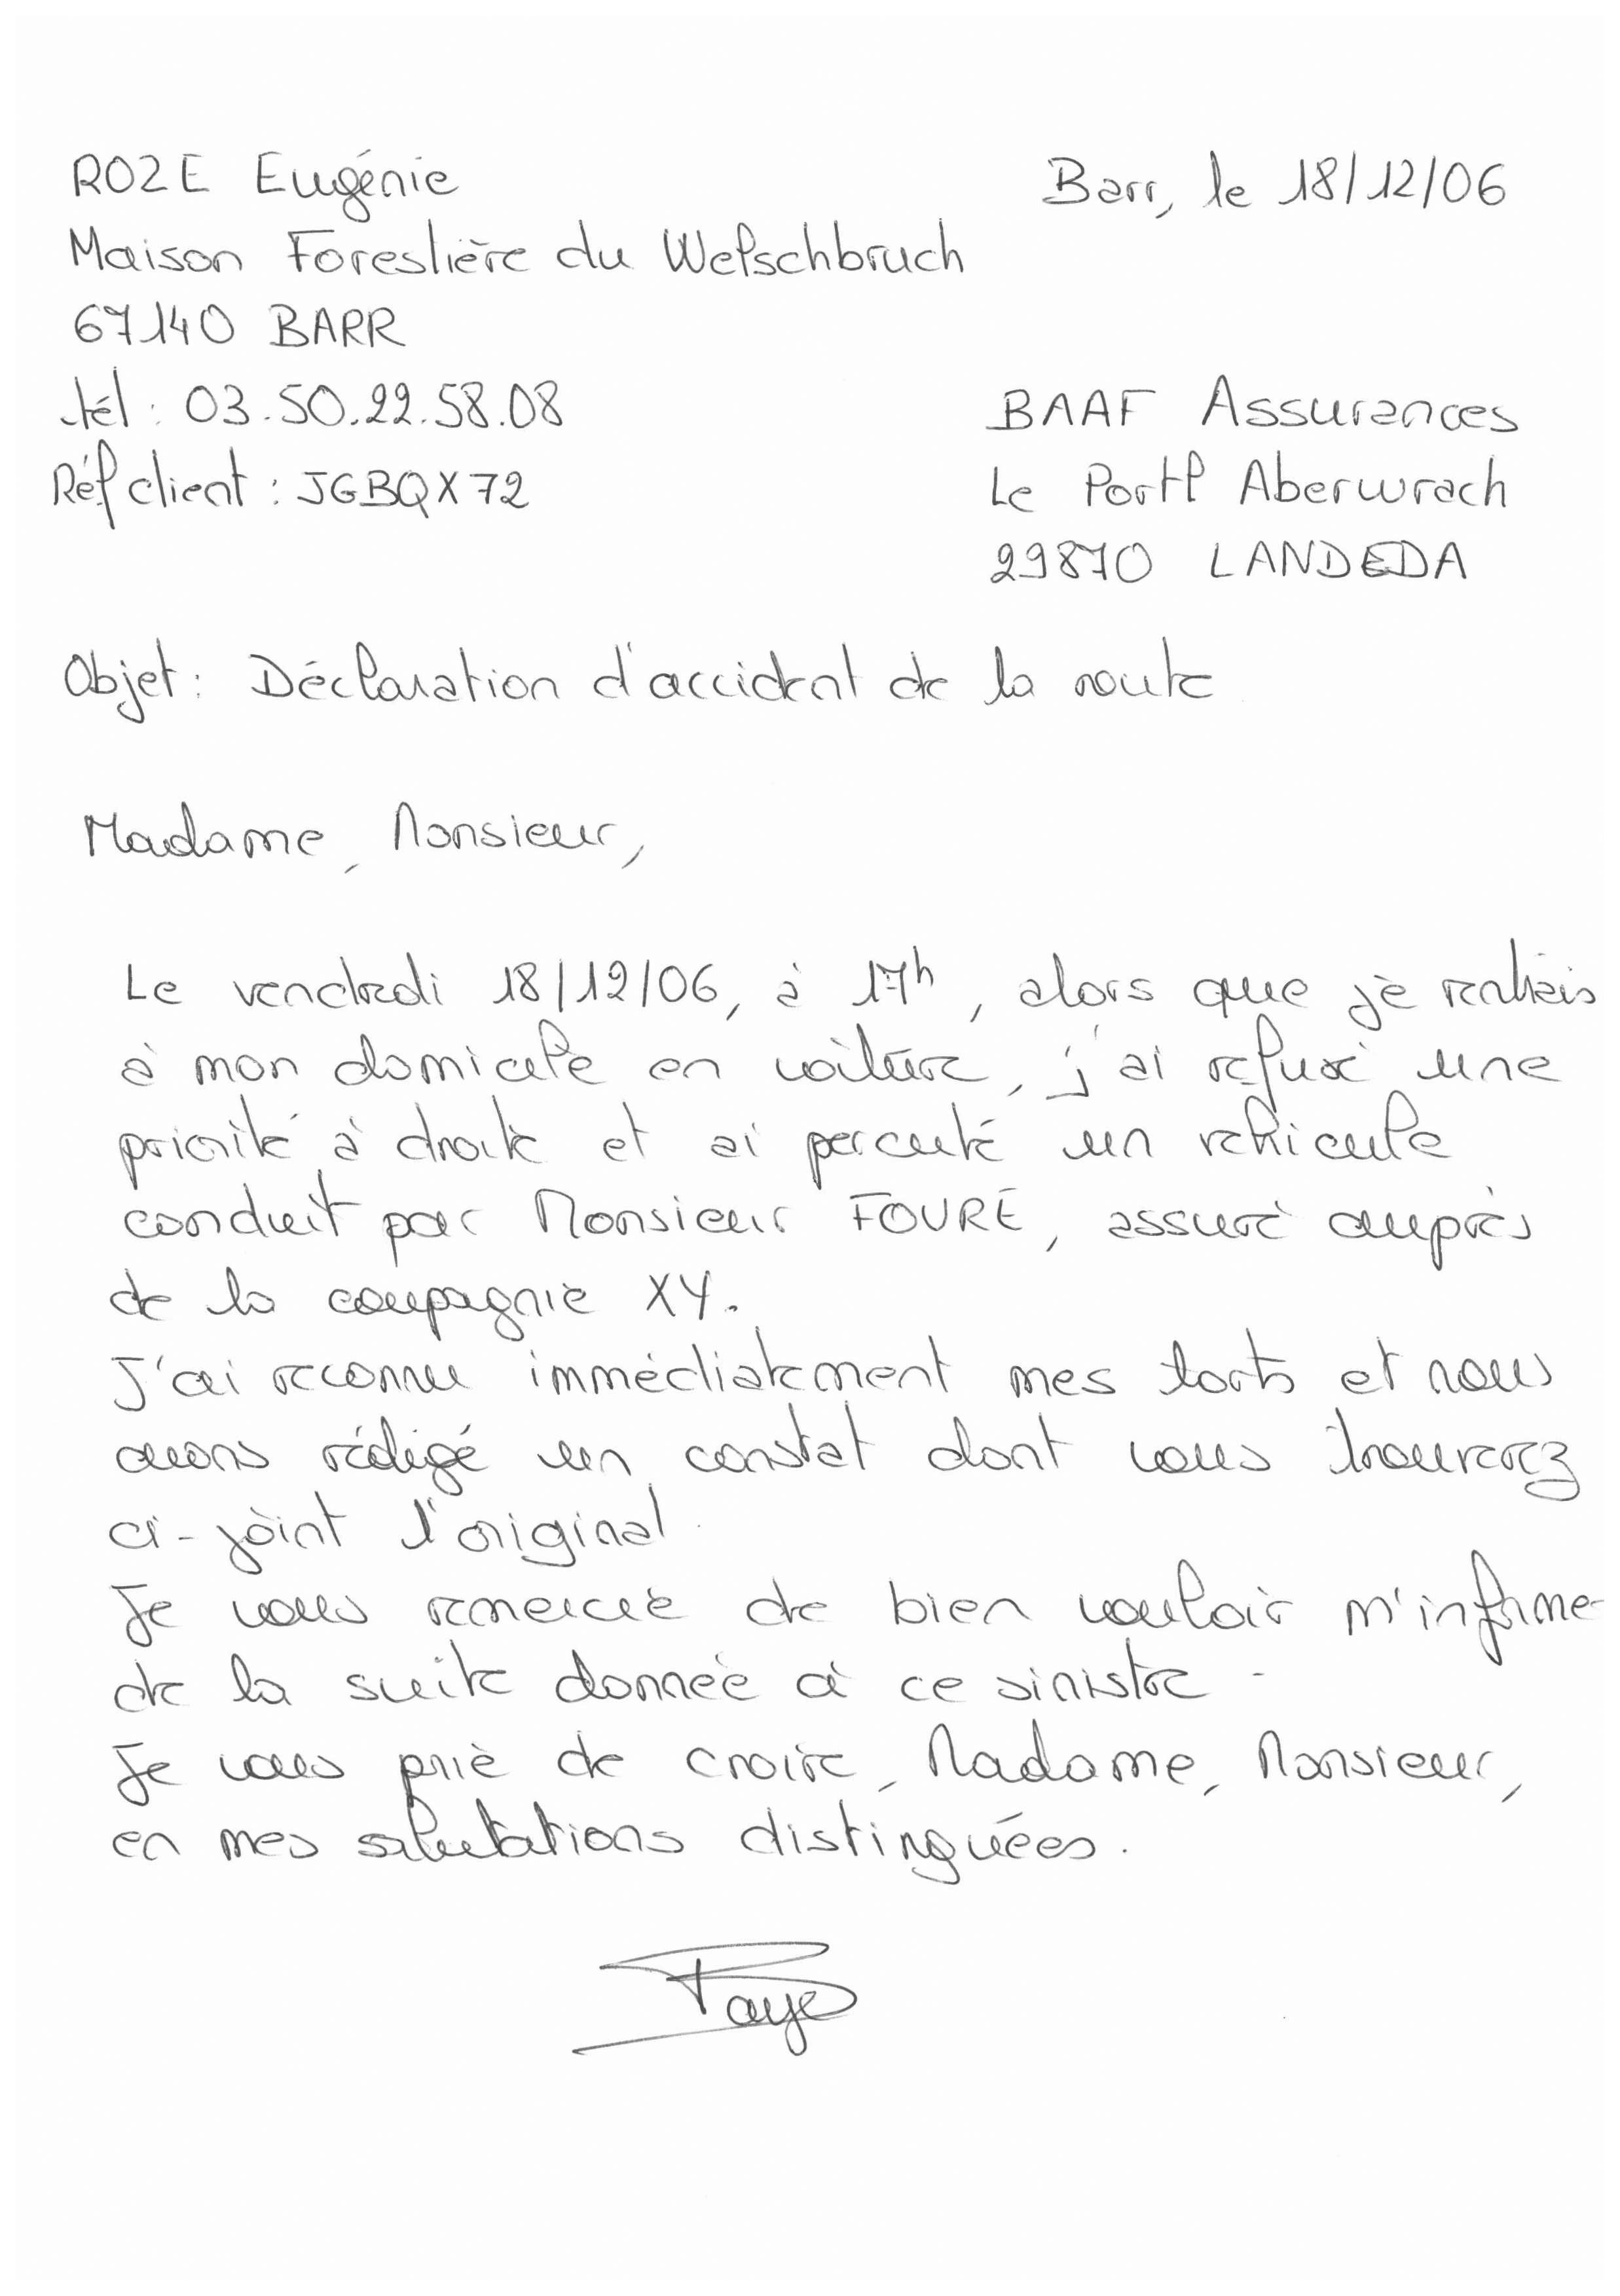 ROZE Eugénie
Barr, le 18/12/06
Maison Forestière du Welschbruch
67140 BARR
tél : 03.50.22.58.08
Réf client : JGBQX72
BAAF Assurances
Le Portl Aberwrach
29870 LANDEDA
Objet : Déclaration d'accident de la route
Madame, Monsieur,
Le vendredi 18/12/06, à 17h, alors que je rentrais
à mon domicile en voiture, j'ai refusé une
priorité à droite et ai percuté un véhicule
conduit par Monsieur FOURÉ, assuré auprès
de la compagnie XY.
J'ai reconnu immédiatement mes torts et nous
avons rédigé un constat dont vous trouverez
ci-joint l'original.
Je vous remercie de bien vouloir m'informer
de la suite donnée à ce sinistre.
Je vous prie de croire, Madame, Monsieur,
en mes salutations distinguées.
Faye